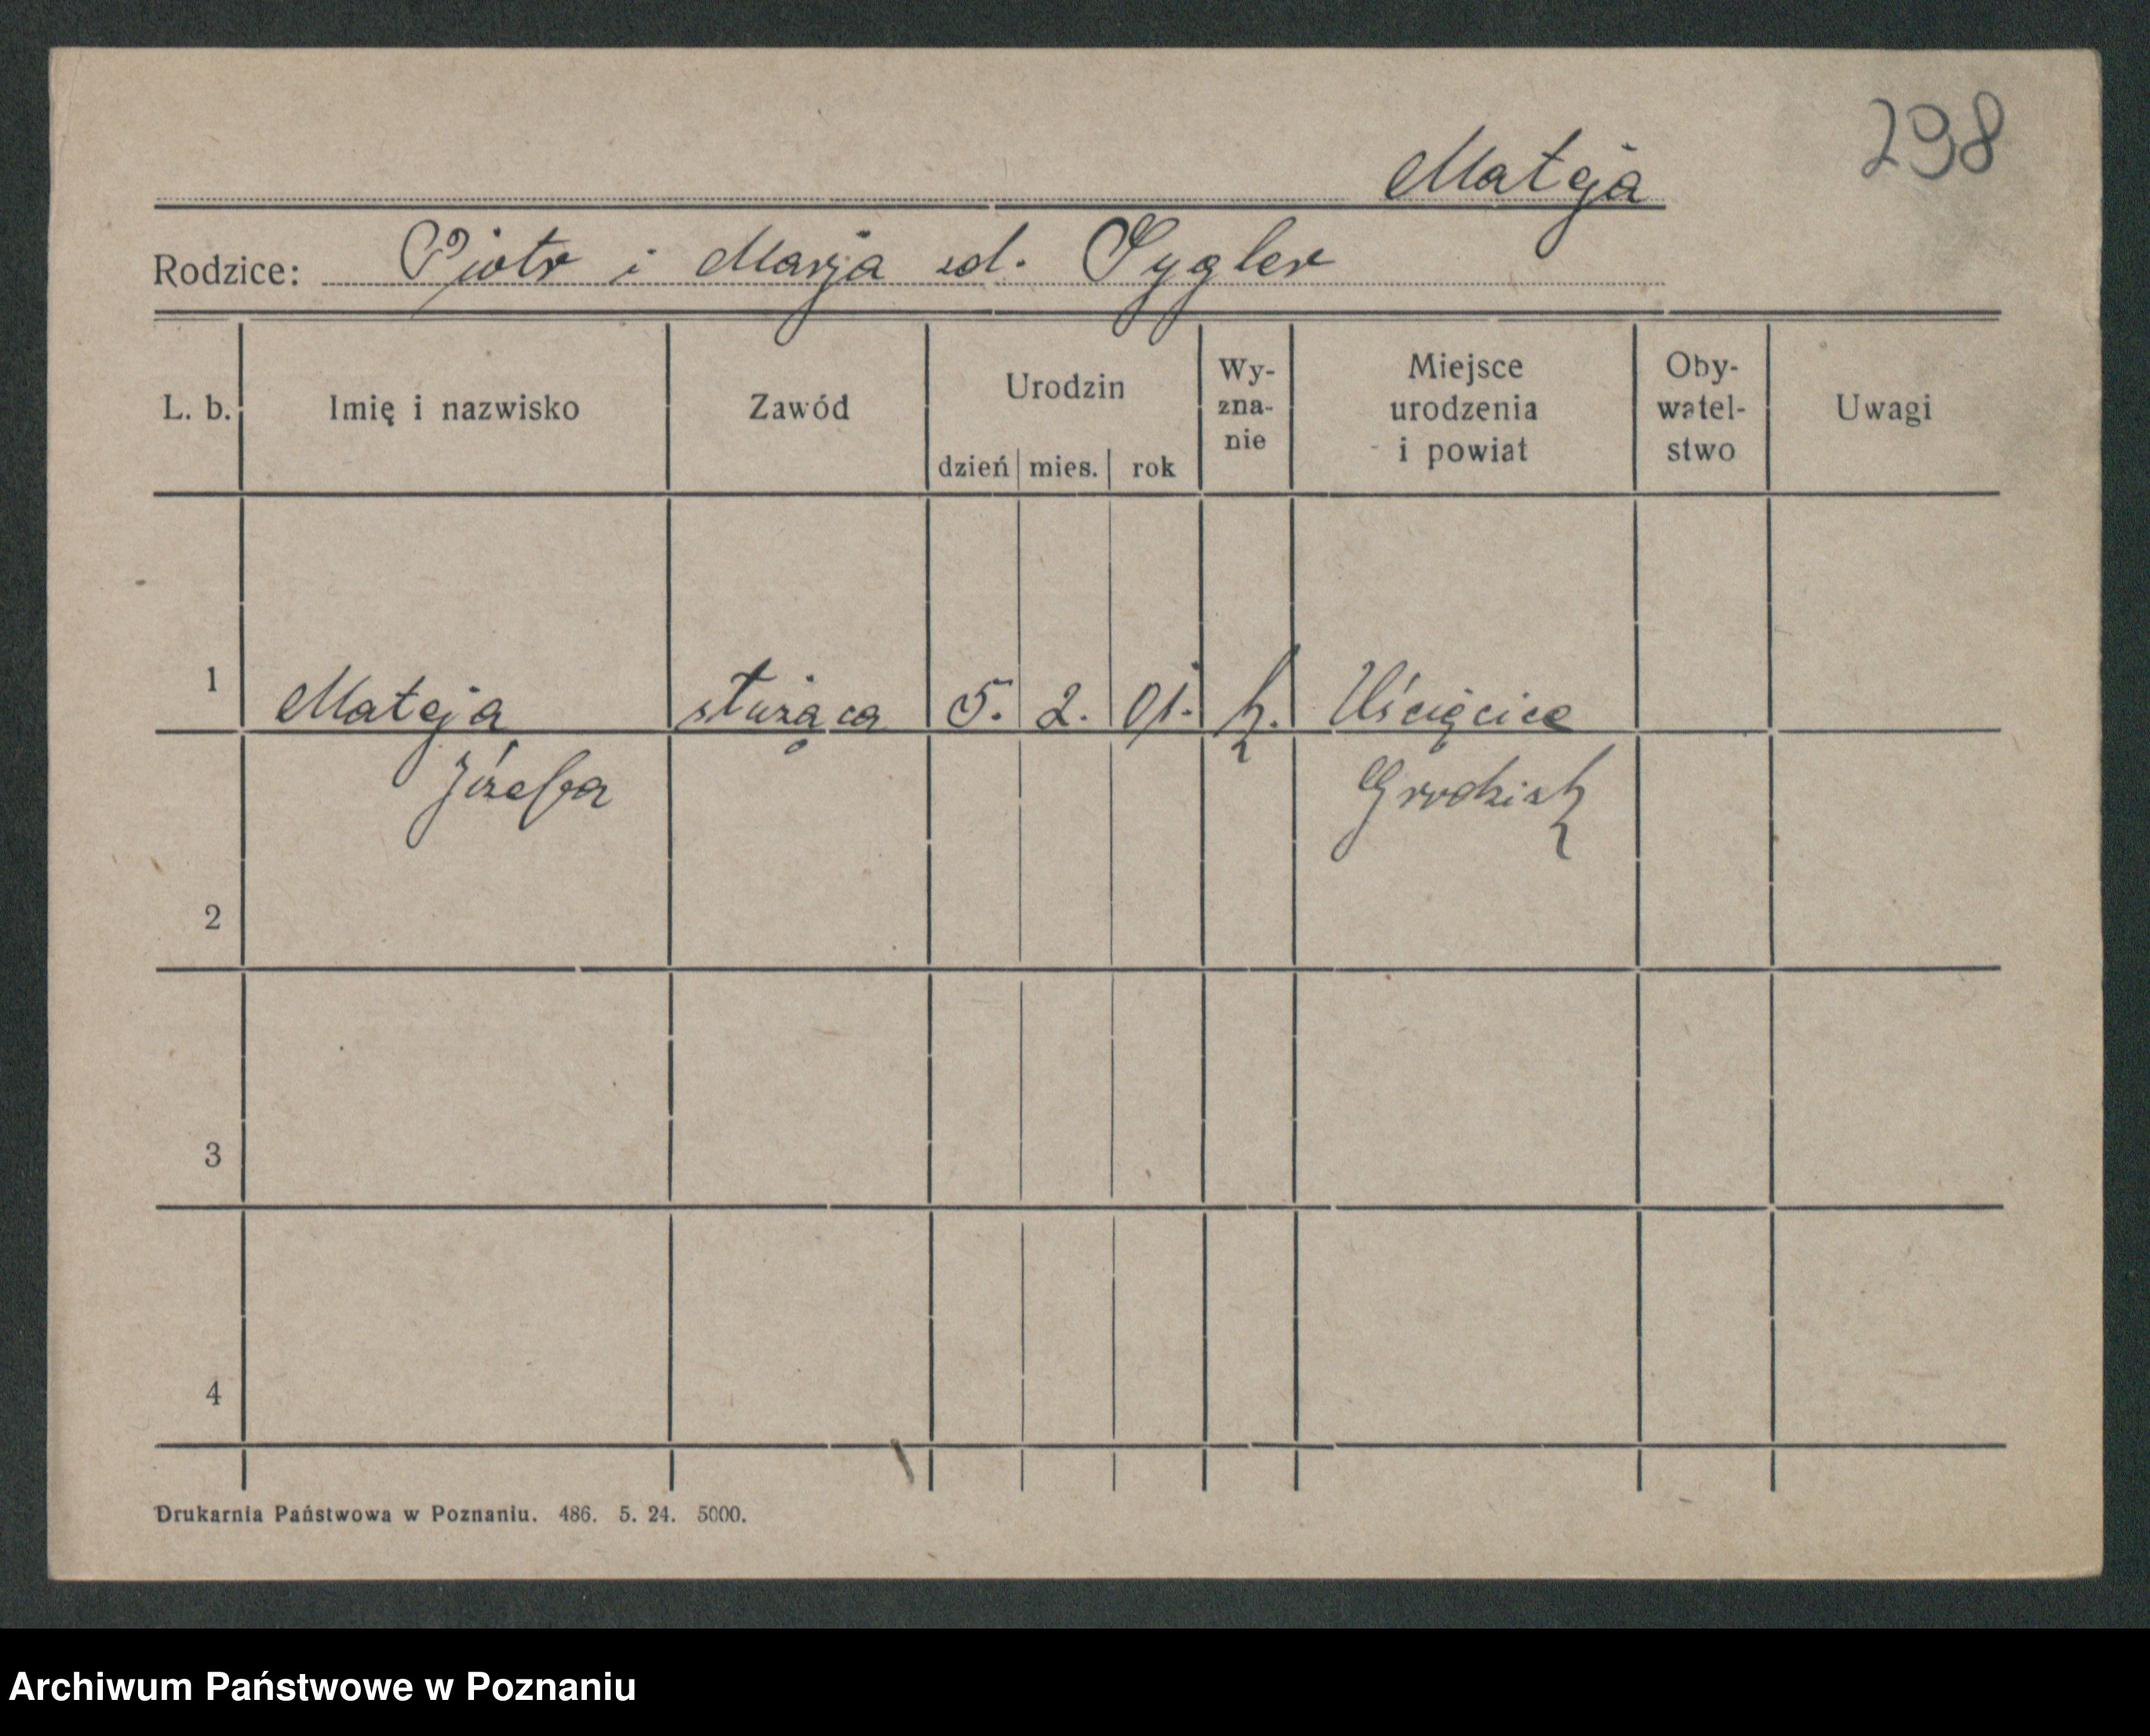 298
Mateja
Rodzice: Piotr i Marja zd. Sygler
L. b. Imię i nazwisko Zawód Urodzin dzień mies. rok Wy-zna-nie Miejsce urodzenia i powiat Oby-watel-stwo Uwagi
1 Mateja służąca 5. 2. 01. k. Uścięcice
Józefa Grodzisk
2
3
4
Drukarnia Państwowa w Poznaniu. 486. 5. 24. 5000.
Archiwum Państwowe w Poznaniu